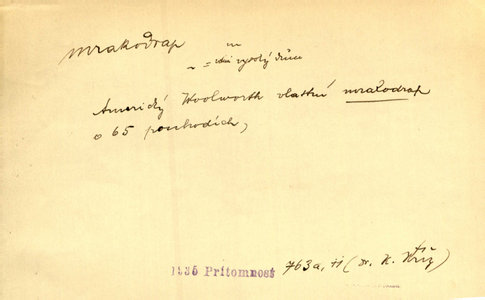 mrakodrap m
~ = velmi vysoký dům
Americký Woolworth vlastní mrakodrap
o 65 poschodích,
1935 Přítomnost 763a, ři (Dr. K. Kříž)